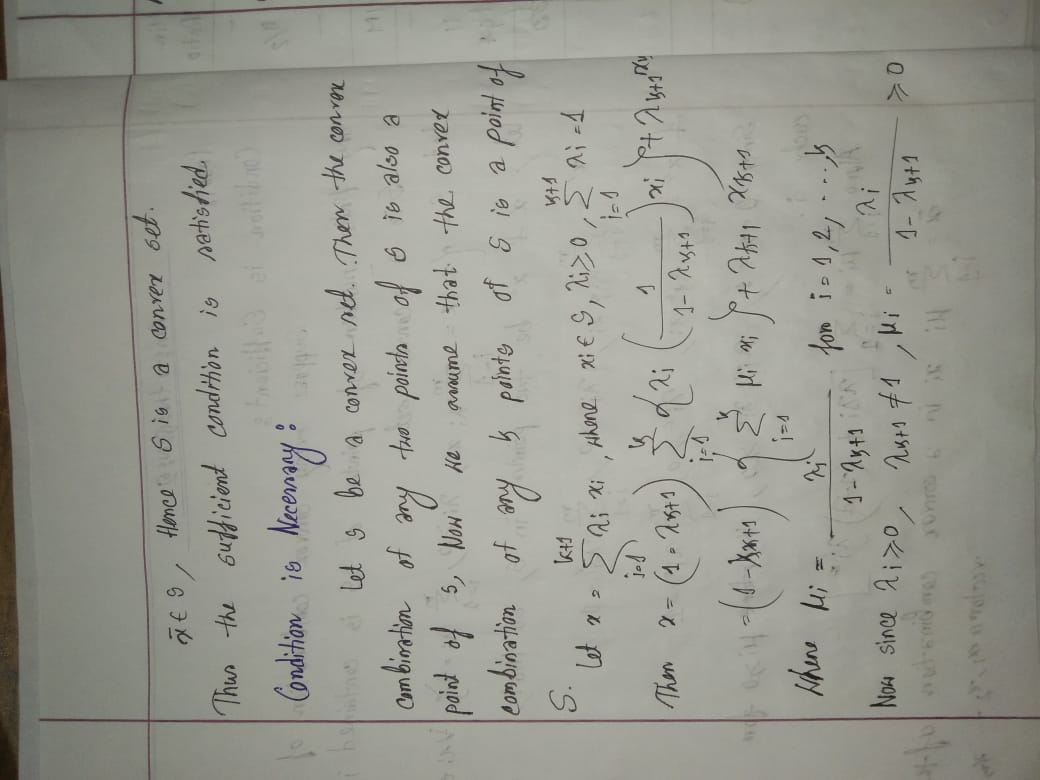 x̄ ∈ S, Hence S is a convex set.
Thus the sufficient condition is satisfied.
Condition is Necessary:
Let S be a convex set. Then the convex
combination of any two points of S is also a
point of S, Now we assume that the convex
combination of any k points of S is a point of
S.
Let x = ∑_{i=1}^{k+1} λi xi, where xi ∈ S, λi ≥ 0, ∑_{i=1}^{k+1} λi = 1
Then x = (1 - λk+1) ∑_{i=1}^{k} { λi ( 1 / (1 - λk+1) ) xi } + λk+1 xk+1
= (1 - λk+1) { ∑_{i=1}^{k} μi xi } + λk+1 xk+1
where μi = λi / (1 - λk+1) for i = 1, 2, ..., k
Now since λi ≥ 0, λk+1 ≠ 1, μi = λi / (1 - λk+1) ≥ 0